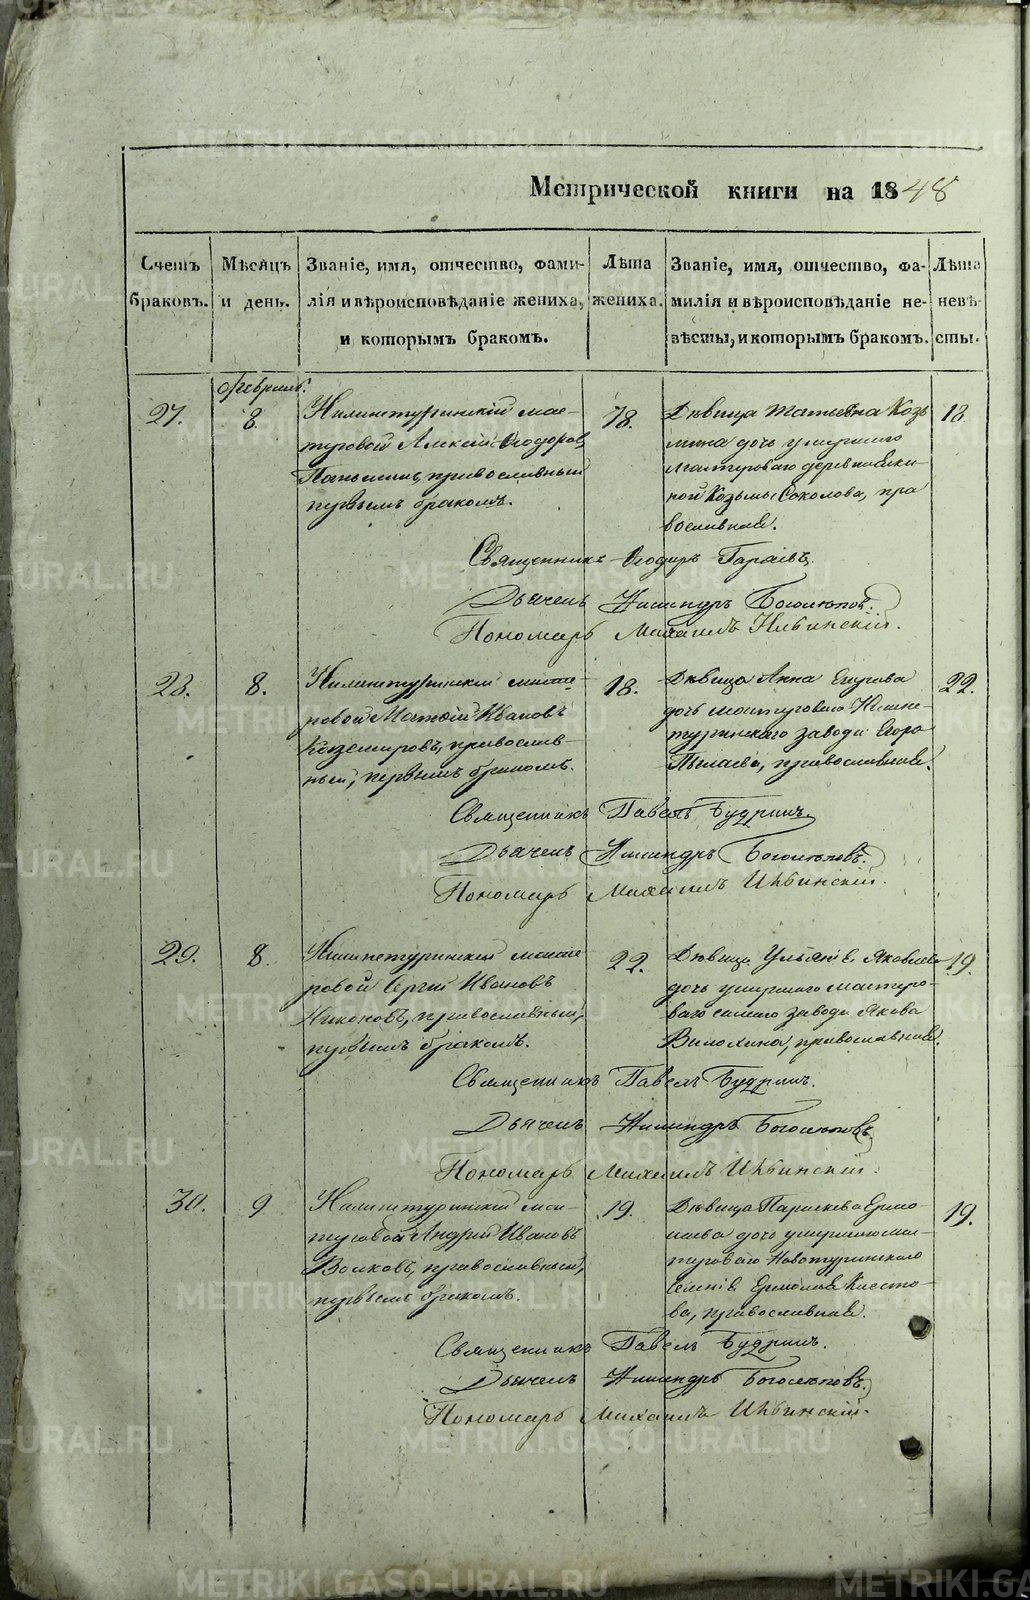 Метрической книги на 1848
Счетъ браковъ.
Мѣсяцъ и день.
Званіе, имя, отчество, фами-
лія и вѣроисповѣданіе жениха,
и которымъ бракомъ.
Лѣта жениха.
Званіе, имя, отчество, фа-
милія и вѣроисповѣданіе не-
вѣсты, и которымъ бракомъ.
Лѣта невѣ-
сты.
Февраль.
27.
8.
Нижнетуринскій мас-
теровой Алексѣй Ѳеодоровъ
православный
первымъ бракомъ.
18.
Дѣвица Татьяна Козь
мина дочь умершаго
мастероваго деревни
Козьмы Соколова, пра
вославная.
18
Священникъ Ѳеодоръ
Дьячекъ Никандръ Боголѣповъ.
Пономарь Михаилъ Ильинскій.
28.
8.
Нижнетуринскій масте-
ровой Матвѣй Ивановъ
православ-
ный, первымъ бракомъ.
18.
Дѣвица Анна Егорова
дочь мастероваго Нижне-
туринскаго завода Егора
Пылаева, православная.
22.
Священникъ Павелъ Будринъ.
Дьячекъ Никандръ Боголѣповъ.
Пономарь Михаилъ Ильинскій.
29.
8.
Нижнетуринскій масте
ровой Сергій Ивановъ
Никоновъ, православный,
первымъ бракомъ.
22.
Дѣвица Ульянія Яковлева
дочь умершаго мастеро-
ваго сего завода Якова
православная.
19.
Священникъ Павелъ Будринъ.
Дьячекъ Никандръ Боголѣповъ.
Пономарь Михаилъ Ильинскій.
30.
9
Нижнетуринскій мас-
теровой Андрей Ивановъ
Волковъ, православный,
первымъ бракомъ.
19.
Дѣвица Параскева Ермо-
лаева дочь умершаго мас-
тероваго Новотуринскаго
селенія Ермолая
православная.
19.
Священникъ Павелъ Будринъ.
Дьячекъ Никандръ Боголѣповъ.
Пономарь Михаилъ Ильинскій.
METRIKI.GASO-URAL.RU